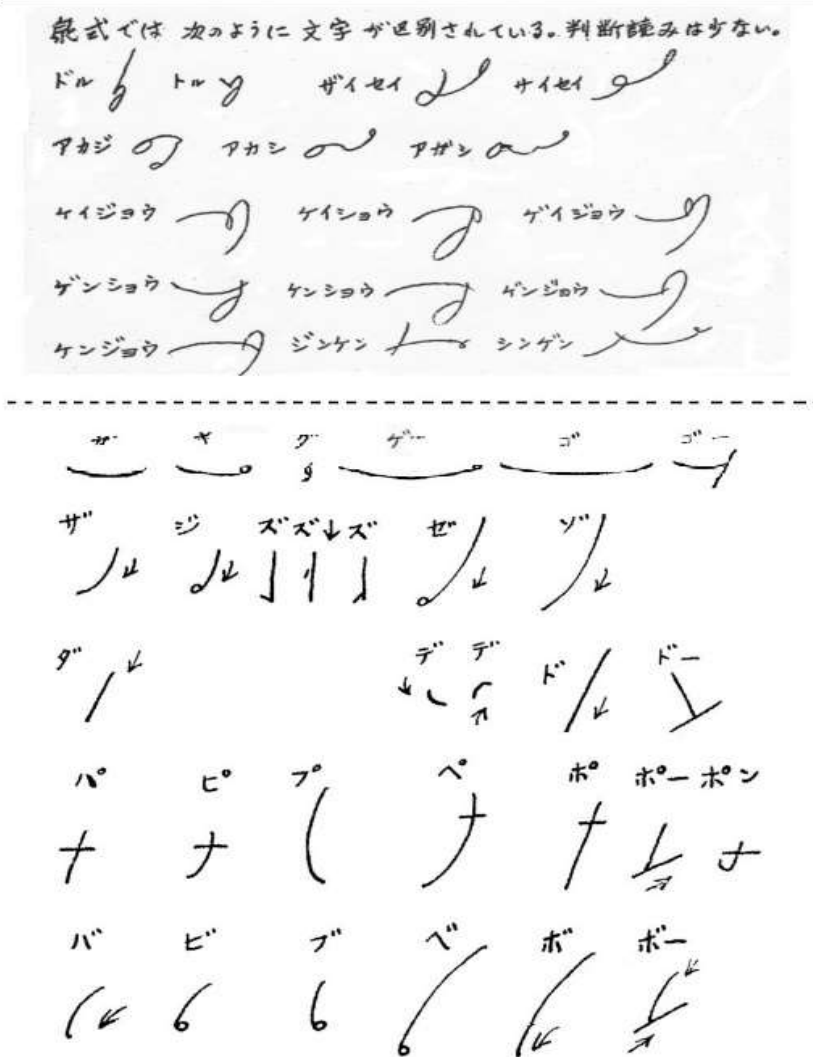 泉式では 次のように 文字 が区別されている。判断読みは少ない。
ドル トル ザイセイ サイセイ
アカジ アカシ アザシ
ケイジョウ ケイショウ ゲイジョウ
ゲンショウ ケンショウ ゲンジョウ
ケンジョウ ジンケン シンゲン
グ ゲー ゴ ゴー
ザ ジ ズ ズ ズ ゼ ゾ
ダ デ デ ド ドー
パ ピ プ ペ ポ ポー ポン
バ ビ ブ ベ ボ ボー